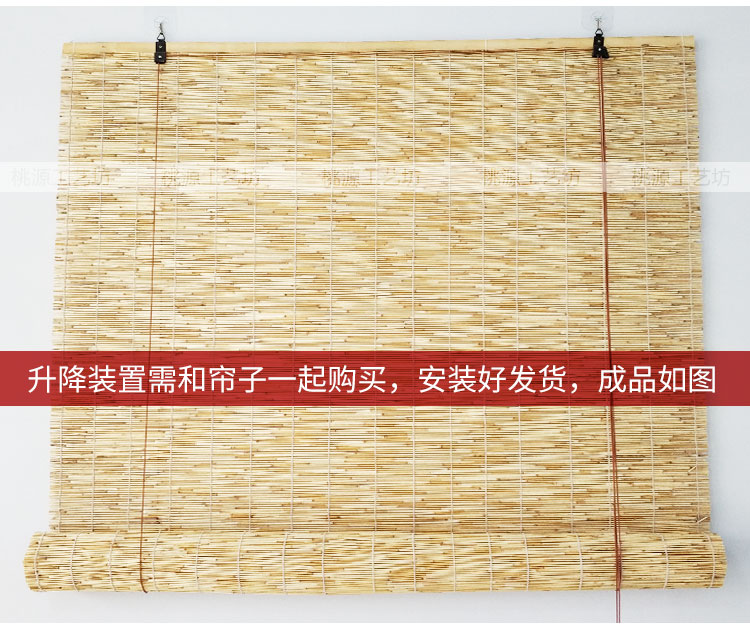 桃源工艺坊 桃源工艺坊 桃源工艺坊 桃源工艺坊 桃源工艺坊
升降装置需和帘子一起购买，安装好发货，成品如图